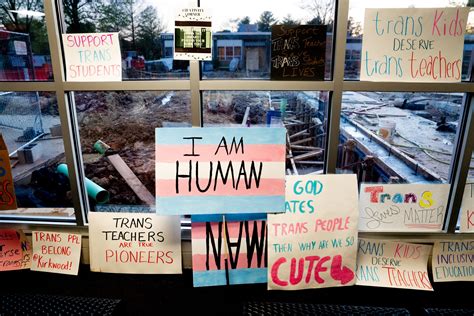 SUPPORT
TRANS
STUDENTS
Trans Kids
DESERVE
trans teachers
I AM
HUMAN
TRANS
TEACHERS
ARE TRUE
PIONEERS
MAN
GOD
ATES
TRANS PEOPLE
THEN WHY ARE WE SO
CUTE
Trans
Lives MATTER
TRANS PPL
BELONG
@Kirkwood!
TRANS KIDS
DESERVE
trans TEACHERS
TRANS
INCLUSIVE